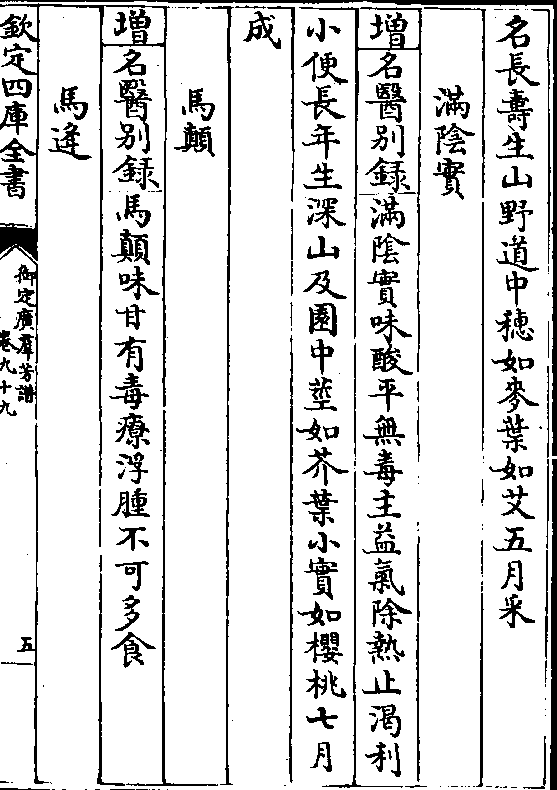 名長壽生山野道中穗如麥葉如艾五月采
滿陰實
增名醫別録滿陰實味酸平無毒主益氣除熱止渴利
小便長年生深山及園中莖如芥葉小實如櫻桃七月
成
馬顛
增名醫別録馬顛味甘有毒療浮腫不可多食
馬逢
欽定四庫全書
御定廣羣芳譜
卷九十九
五